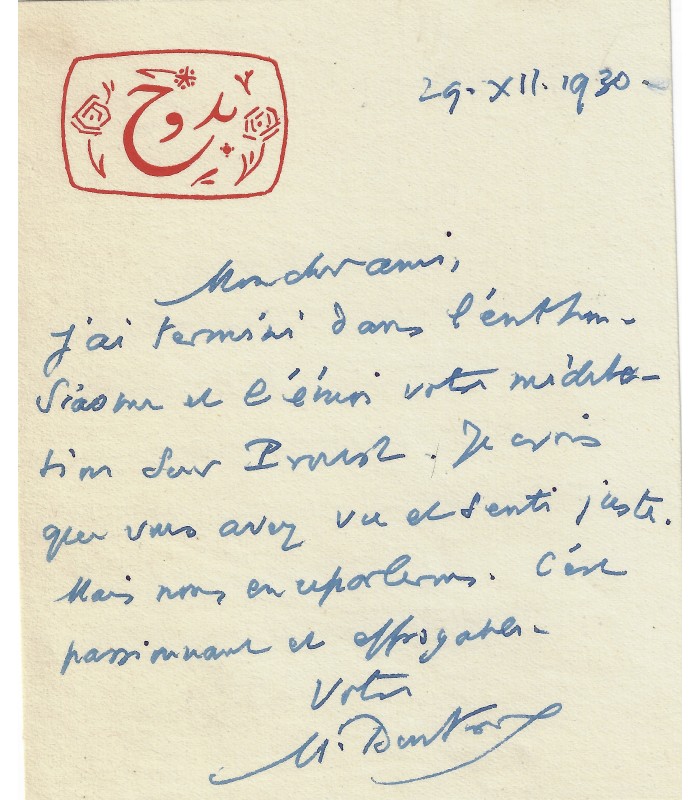 بدوح
29. XII. 1930 -
Mon cher ami,
j'ai terminé dans l'enthou-
siasme et l'émoi votre médita-
tion sur Proust. Je crois
que vous avez vu et senti juste.
Mais nous en reparlerons. C'est
passionnant et effroyable.
Votre